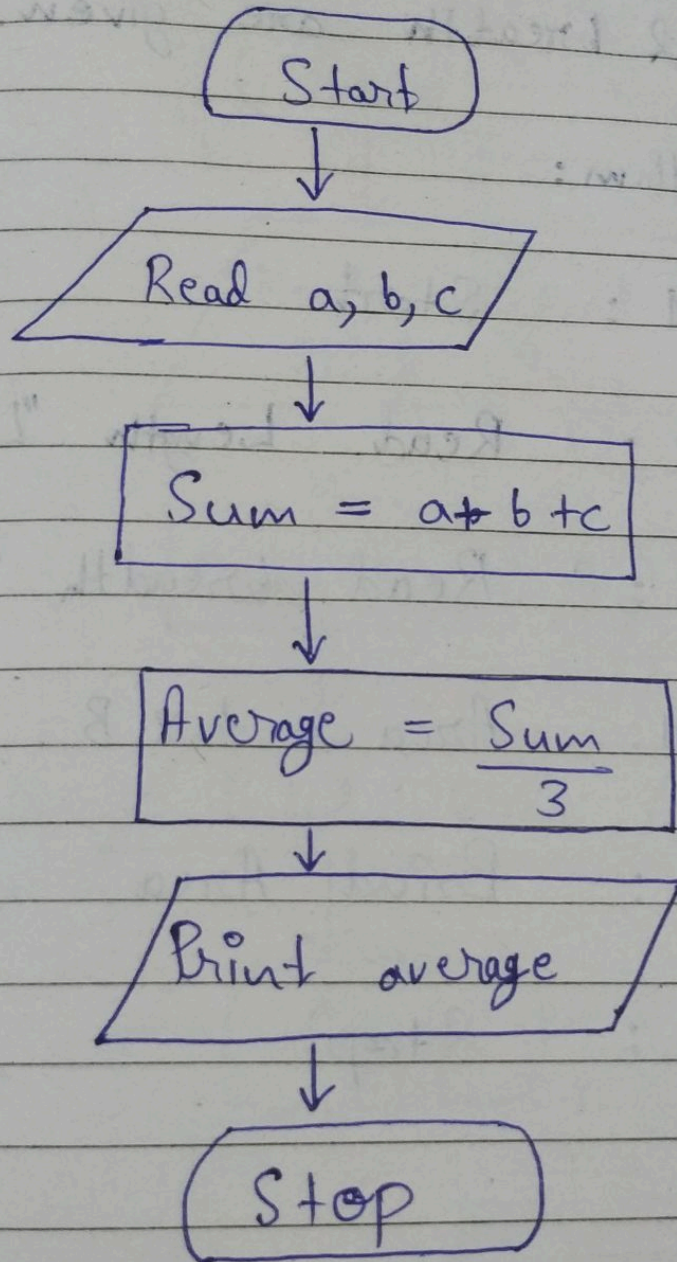 Start
Read a, b, c
Sum = a + b + c
Average = Sum
3
Print average
Stop